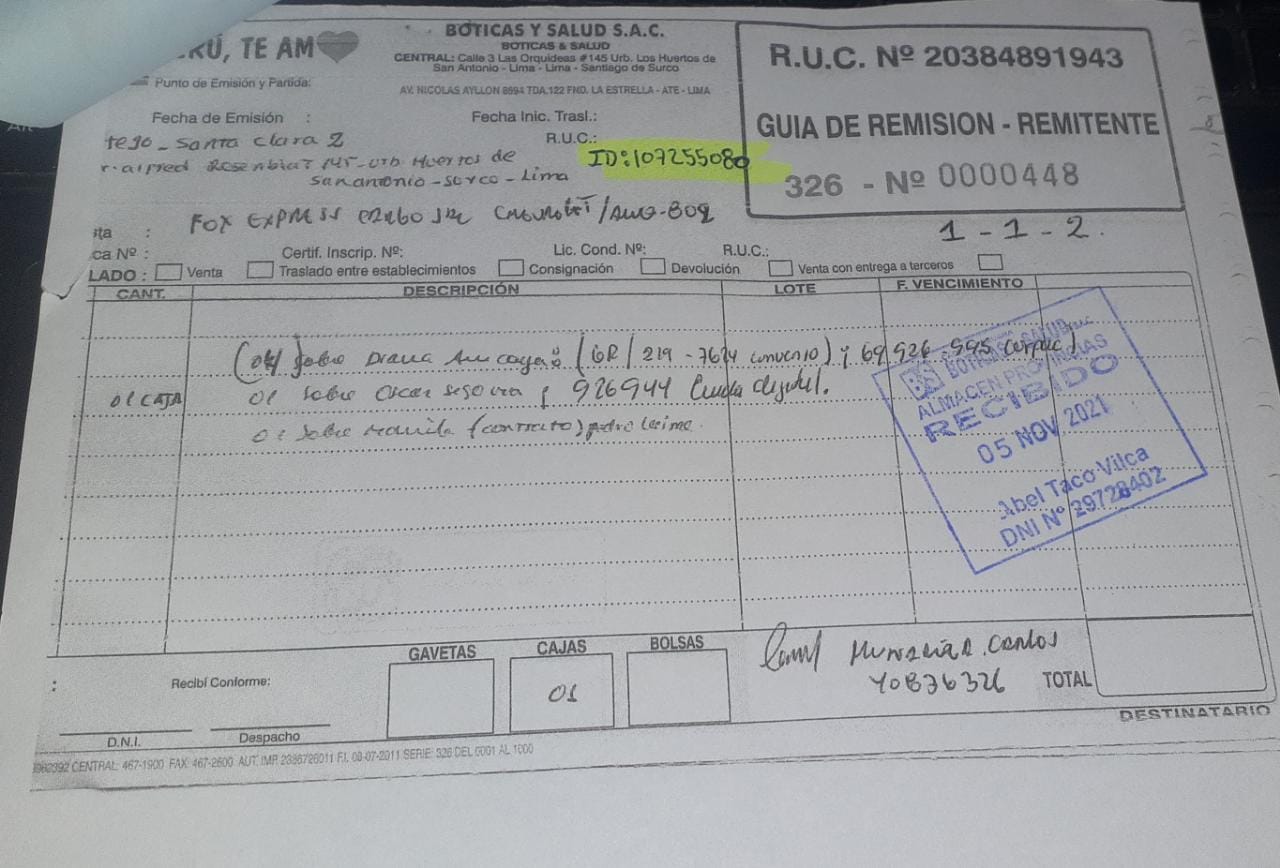 ERÚ, TE AM
BOTICAS Y SALUD S.A.C.
BOTICAS & SALUD
CENTRAL: Calle 3 Las Orquideas #145 Urb. Los Huertos de
San Antonio - Lima - Lima - Santiago de Surco
AV. NICOLAS AYLLON 8694 TDA.122 FND. LA ESTRELLA - ATE - LIMA
R.U.C. Nº 20384891943
GUIA DE REMISION - REMITENTE
326 - Nº 0000448
Punto de Emisión y Partida:
Fecha de Emisión :
Fecha Inic. Trasl.:
R.U.C.:
Santa Clara 2
ID:107255080
145 - Urb Huertos de
San Antonio - Surco - Lima
FOX EXPRESS
1 - 1 - 2.
ita :
ca Nº :
Certif. Inscrip. Nº:
Lic. Cond. Nº:
R.U.C.:
LADO :
Venta
Traslado entre establecimientos
Consignación
Devolución
Venta con entrega a terceros
CANT.
DESCRIPCIÓN
LOTE
F. VENCIMIENTO
sobre Diana (GR/219-7674 convenio) y
01 CAJA
01 sobre Oscar Segovia y 926944
01 sobre (contrato) pedro
BOTICAS Y SALUD S.A.C.
ALMACEN PROVINCIAS
RECIBIDO
05 NOV 2021
Abel Taco Vilca
DNI Nº 29728402
GAVETAS
CAJAS
BOLSAS
01
Recibí Conforme:
D.N.I.
Despacho
Carlos
40876326
TOTAL
DESTINATARIO
CENTRAL: 467-1900 FAX: 467-2600 AUT. IMP. 2386726011 F.I. 08-07-2011 SERIE: 326 DEL 0001 AL 1000